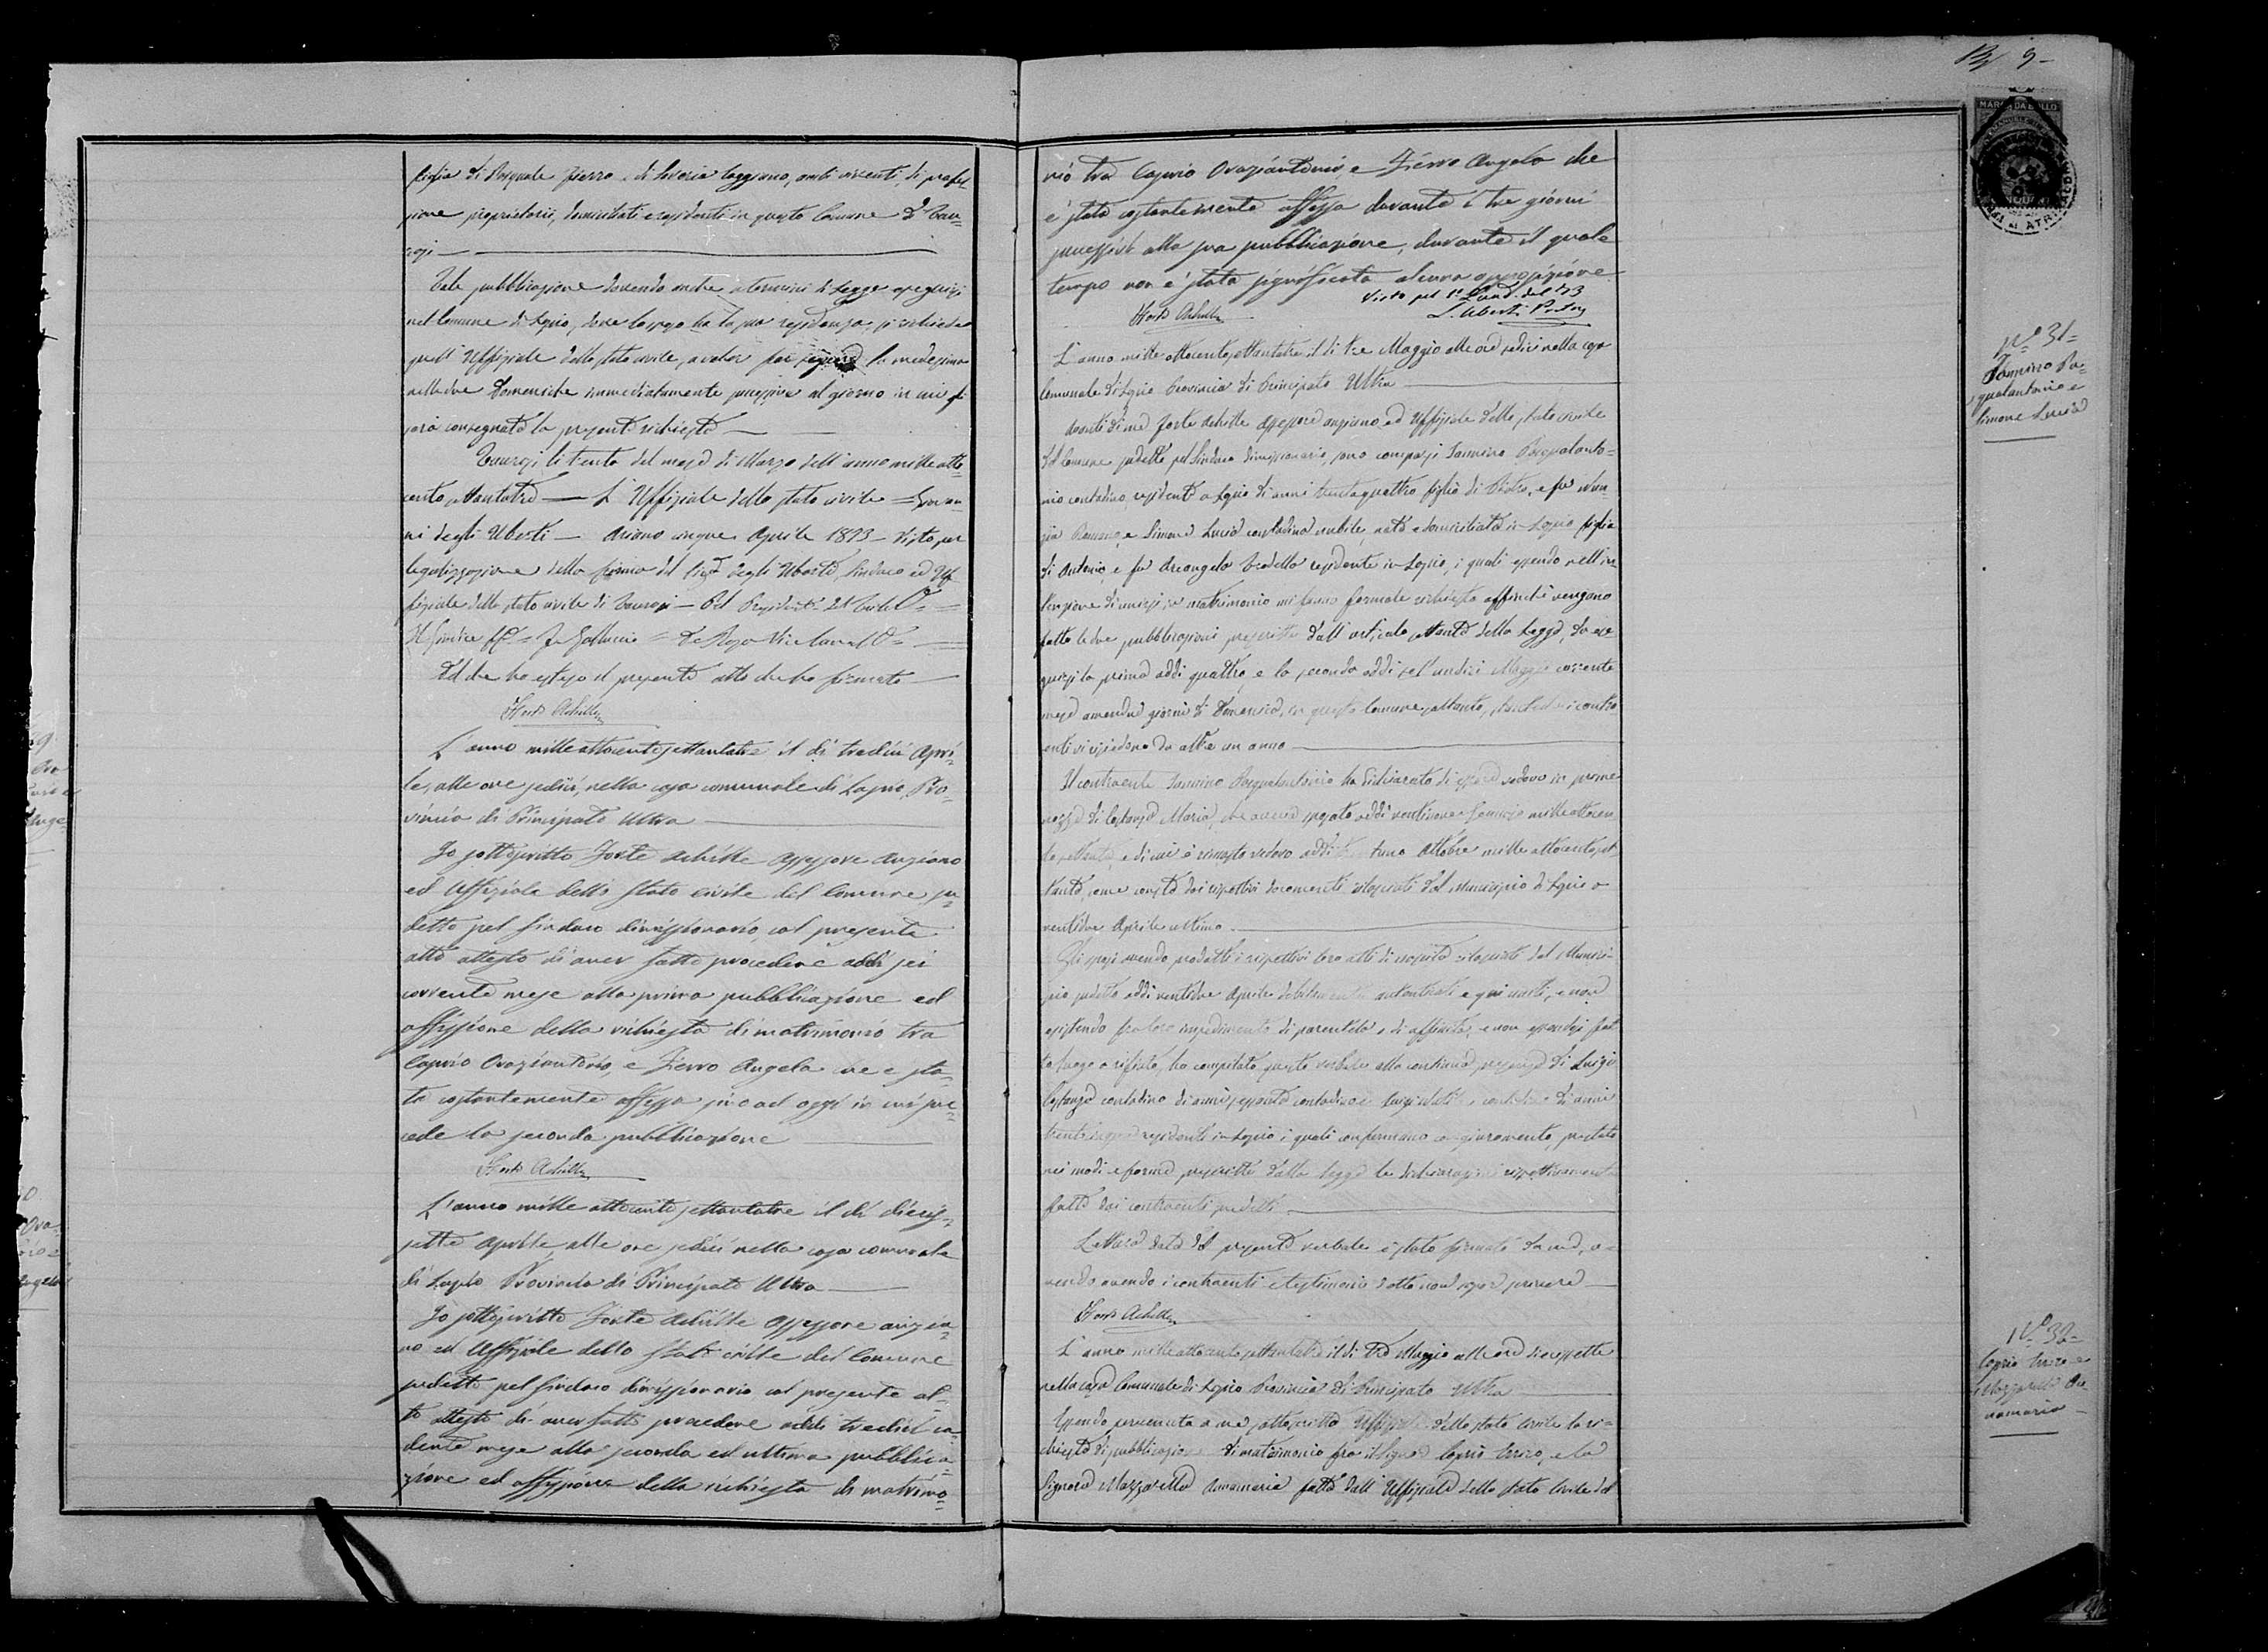 figlia di Pasquale Fierro e di Saveria Caggiano, ambi viventi, di profes
sione proprietarii, domiciliati e residenti in questo Comune di Tau=
rasi
Tale pubblicazione dovendo anche a termini di Legge eseguirsi
nel Comune di Lapio, dove lo sposo ha la sua residenza, si richiede
quell'Uffiziale dello stato civile, a voler far seguire la medesima
nelle due Domeniche immediatamente successive al giorno in cui gli
sarà consegnata la presente richiesta
Taurasi li trenta del mese di Marzo dell'anno mille otto=
cento settantatre — L'Uffiziale dello stato civile = Giovan=
ni degli Uberti — Ariano cinque Aprile 1873 — Visto per
legalizzazione della firma del Sig.r degli Uberti, Sindaco ed Uf
fiziale dello stato civile di Taurasi — Pel Presidente del
Il Giudice ff.
Ed che ho esteso il presente atto che ho firmato
Forte Achille
L'anno mille ottocento settantatre il dì tredici Apri=
le, alle ore sedici, nella casa comunale di Lapio, Pro=
vincia di Principato Ultra
Io sottoscritto Forte Achille Assessore Anziano
ed Uffiziale dello Stato Civile del Comune su=
detto pel Sindaco dimissionario, col presente
atto attesto di aver fatto procedere addì sei
corrente mese alla prima pubblicazione ed
affissione della richiesta di matrimonio tra
Caprio Oraziantonio, e Fierro Angela che è sta=
ta costantemente affissa sino ad oggi in cui suc=
cede la seconda pubblicazione
Forte Achille
L'anno mille ottocento settantatre il dì dicias=
sette Aprile, alle ore sedici nella casa comunale
di Lapio Provincia di Principato Ultra
Io sottoscritto Forte Achille Assessore anzia=
no ed Uffiziale dello Stato civile del Comune
sudetto pel Sindaco dimissionario col presente at=
to attesto di aver fatto procedere addì tredici ca=
dente mese alla seconda ed ultima pubblica=
zione ed affissione della richiesta di matrimo=
9
nio tra Caprio Oraziantonio, e Fierro Angela che
è stata costantemente affissa durante i tre giorni
successivi alla sua pubblicazione, durante il quale
tempo non è stata significata alcuna opposizione
Visto pel 73
Forte Achille
L'anno mille ottocento settantatre il dì tre Maggio alle ore sedici nella casa
Comunale di Lapio Provincia di Principato Ultra
Avanti di me Forte Achille Assessore anziano ed Uffiziale dello stato civile
del Comune sudetto pel Sindaco dimissionario, sono comparsi Iannino Pasqualanto=
nio contadino, residente a Lapio di anni trentaquattro figlio di Pietro, e fu Nun=
zia Romano, e Simone Lucia contadina nubile, nata e domiciliata in Lapio figlia
di Antonio, e fu Arcangela residente in Lapio, i quali essendo nell'in=
tenzione di unirsi in matrimonio mi fanno formale richiesta affinchè vengano
fatte le due pubblicazioni prescritte dall'articolo settanta della Legge, da ese
guirsi la prima addì quattro, e la seconda addì undici Maggio corrente
mese amendue giorni di Domenica, in questo Comune soltanto, i contra
enti vi risiedono da oltre un anno
Il contraente Iannino Pasqualantonio ha dichiarato di essere vedovo in prime
nozze di Costanza Maria, che aveva sposato addì ventinove Gennaio mille ottocen
to e di cui è rimasto vedovo addì Ottobre mille ottocento set
tanta, come consta dai rispettivi documenti rilasciati dal Municipio di Lapio a
ventidue Aprile ultimo
Gli sposi avendo prodotti i rispettivi loro atti di nascita rilasciati dal Munici=
pio sudetto addì ventidue Aprile debitamente autenticati e qui uniti, e non
esistendo fra loro impedimento di parentela, e di affinità, e non essendosi fat
to luogo a rifiuto, ho compilato questo verbale alla continua presenza di Luigi
Costanza contadino di anni sessanta contadino e contadino di anni
residenti in Lapio i quali confermano con giuramento prestato
nei modi e forme prescritte dalla legge le dichiarazioni rispettivamente
fatte dai contraenti predetti
Lettura data del presente verbale è stato firmato da me, a=
vendo i contraenti e testimoni detto non saper scrivere
Forte Achille
L'anno mille ottocento settantatre il dì tre Maggio alle ore diciassette
nella casa Comunale di Lapio Provincia di Principato Ultra
Essendo pervenuta a me sottoscritto Uffiziale dello stato Civile la ri=
chiesta di pubblicazione di matrimonio fra il Signor Caprio Errico, e la
Signora Mazzarella Annamaria fatta dall'Uffiziale dello stato Civile del
N.o 31=
Iannino Pa=
squalantonio e
Simone Lucia
N.o 32=
Caprio Errico e
Mazzarella An
namaria
MARCA DA BOLLO